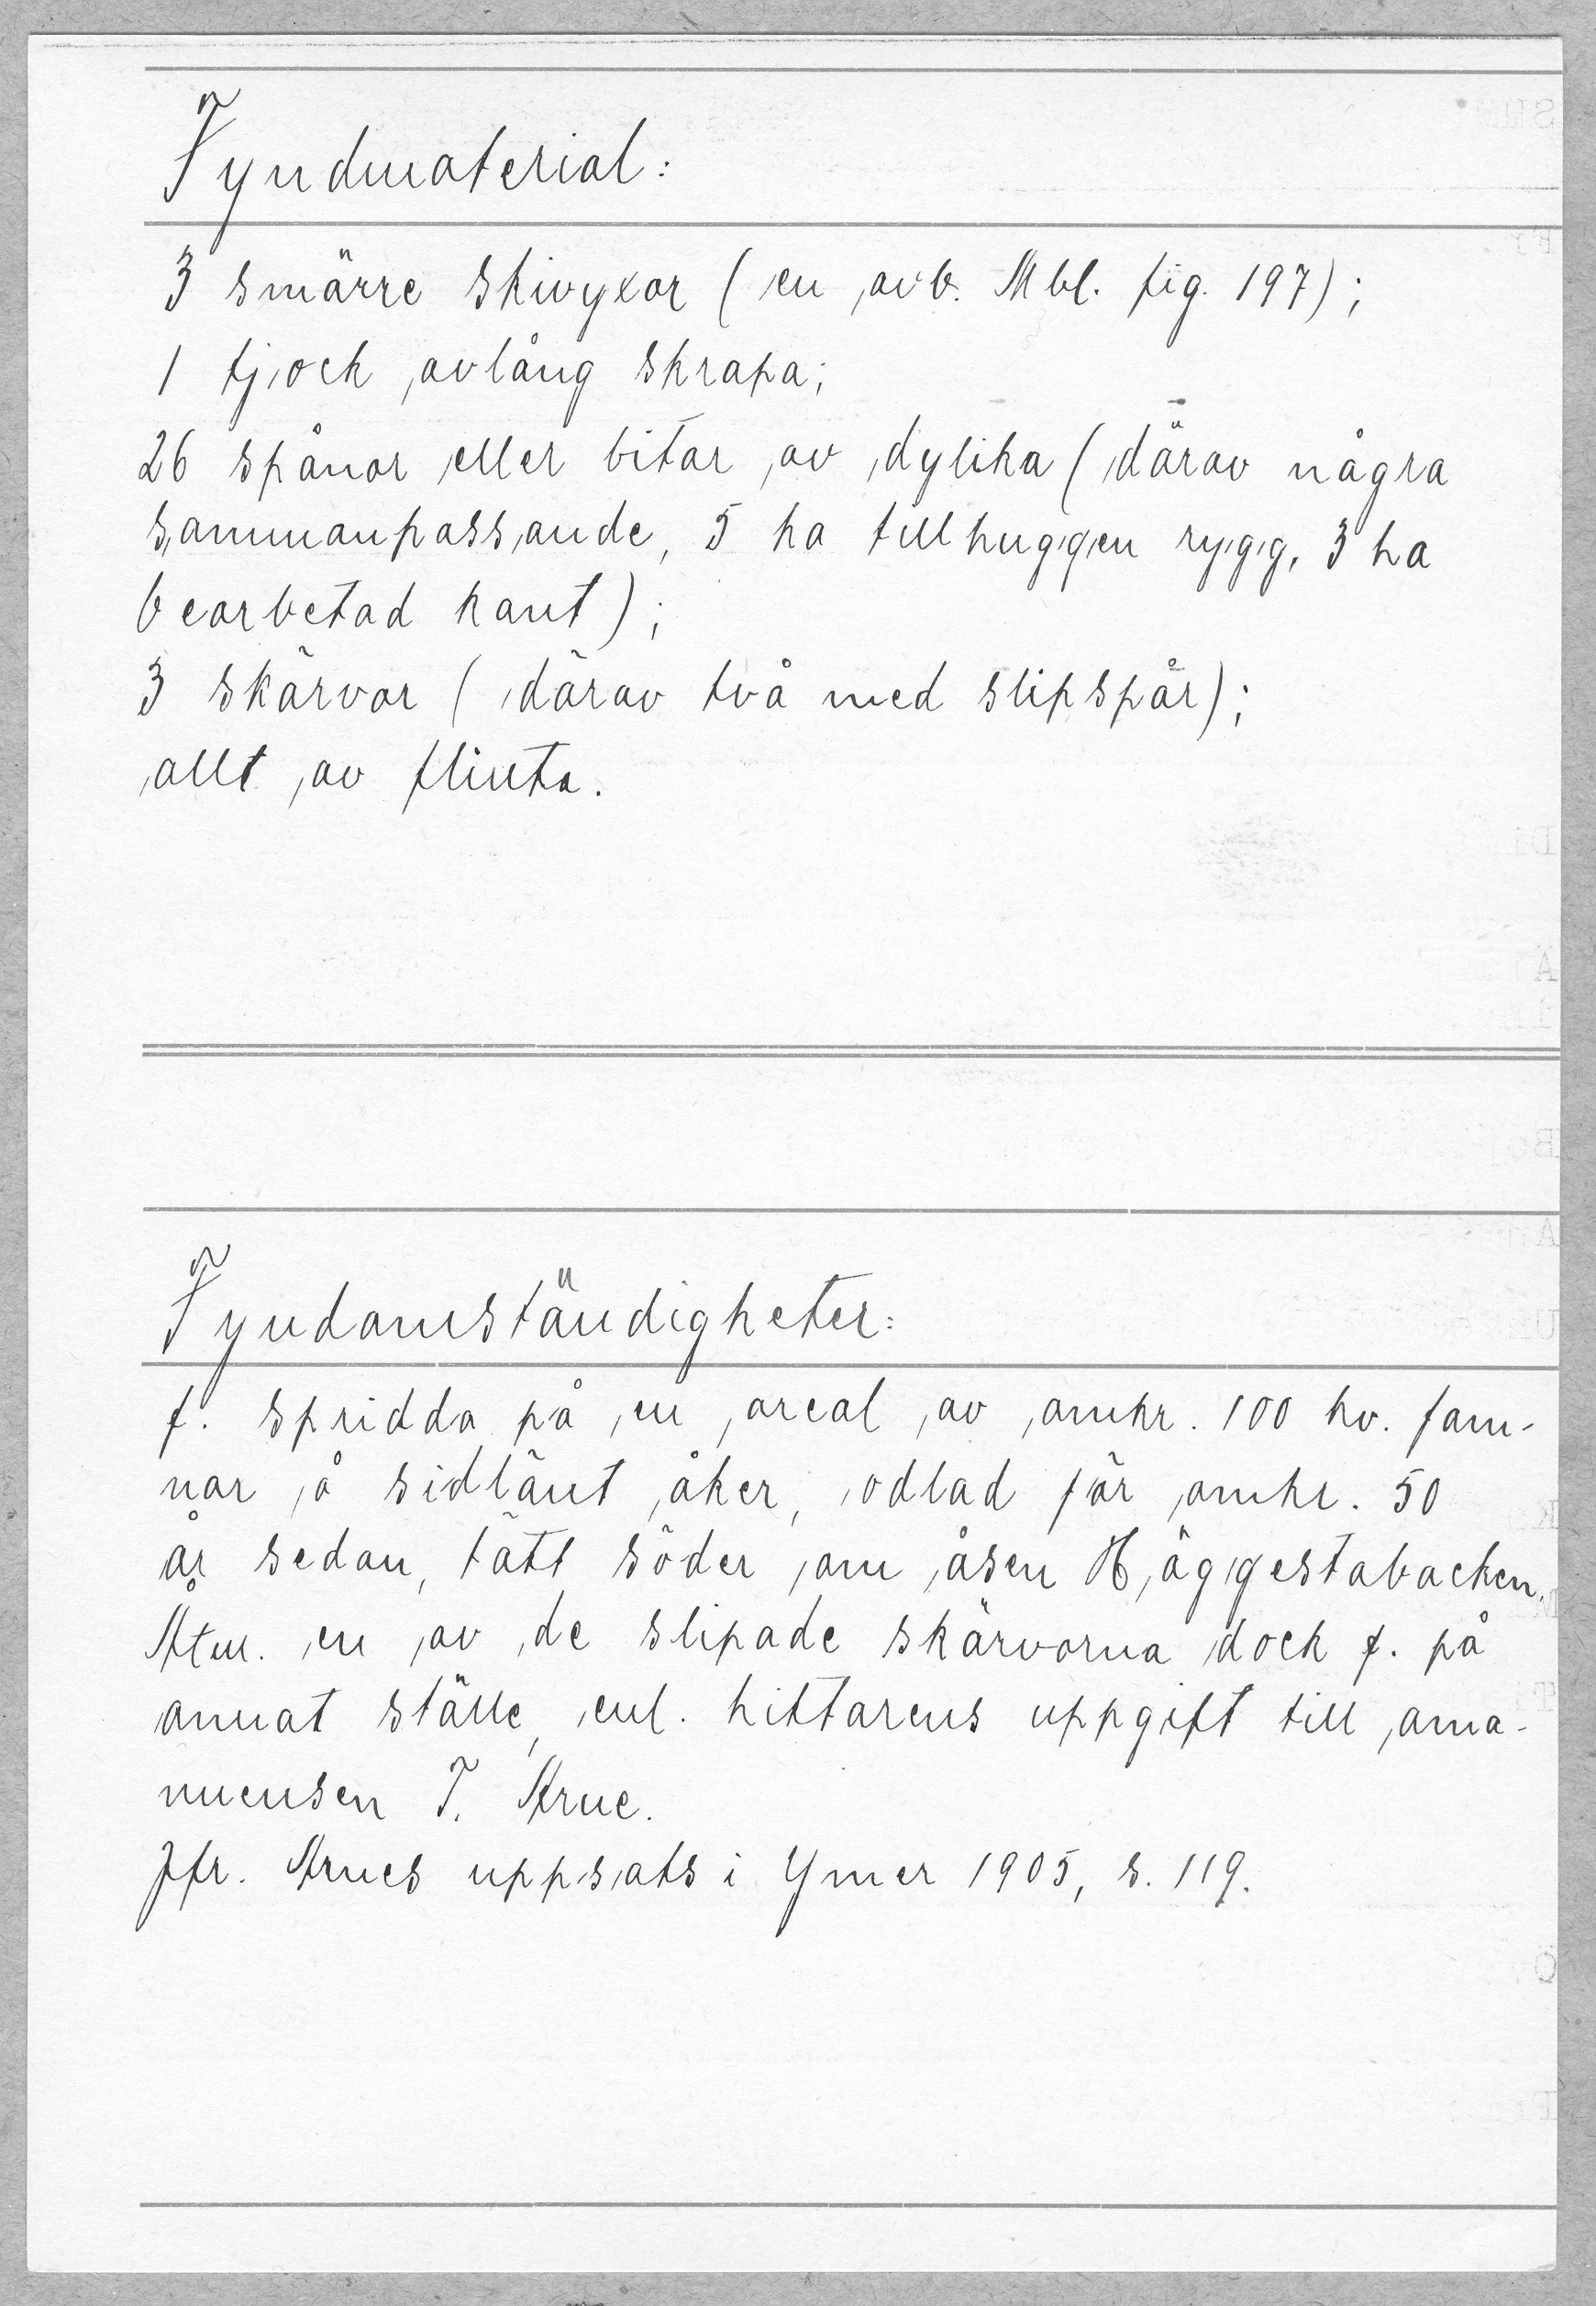 Fyndmaterial:
3 smärre skivyxor (en avb. Mbl. fig. 197);
1 tjock avlång skrapa;
26 spånor eller bitar av dylika (därav några
sammanpassande, 5 ha tillhuggen rygg, 3 ha
bearbetad kant);
3 skärvor (därav två med slipspår);
allt av flinta.
Fyndomständigheter:
f. spridda på en areal av omkr. 100 kv. fam-
nar å sidlänt åker, odlad för omkr. 50
år sedan, tätt söder om åsen Häggestabacken.
Åtm. en av de slipade skärvorna dock f. på
annat ställe, enl. hittarens uppgift till ama-
nuensen T. Arne.
Jfr. Arnes uppsats i Ymer 1905, s. 119.